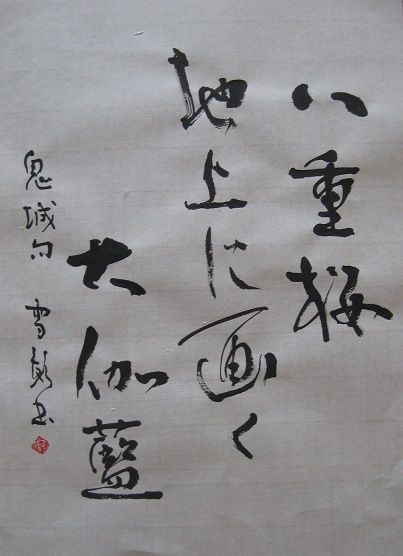 八重桜
地上に画く
大伽藍
鬼城句 雪 書